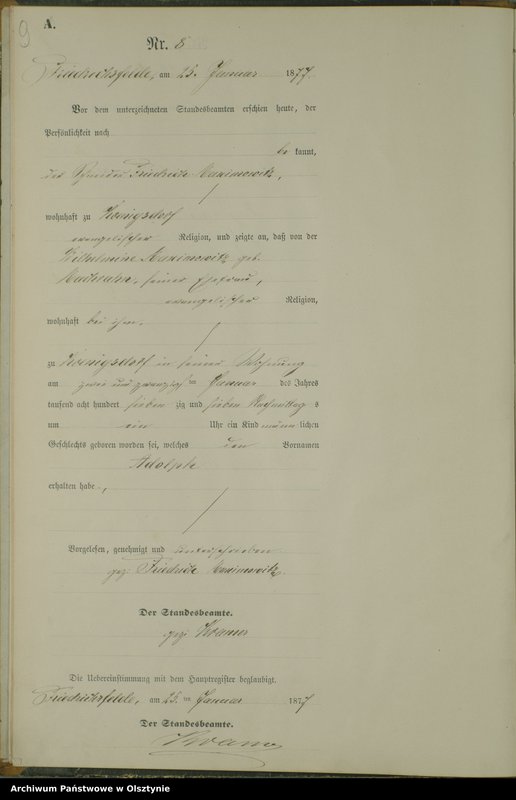 9
A.
Nr. 8
Friedrichsfelde, am 25. Januar 1877.
Vor dem unterzeichneten Standesbeamten erschien heute, der
Persönlichkeit nach
be kannt,
der Friedrich
wohnhaft zu Koenigsdorf
evangelischer Religion, und zeigte an, daß von der
Wilhelmine geb.
seiner Ehefrau,
evangelischer Religion,
wohnhaft bei ihm,
zu Koenigsdorf in seiner Wohnung
am zwei und zwanzigsten Januar des Jahres
tausend acht hundert sieben zig und sieben Nachmittag s
um ein Uhr ein Kind männ lichen
Geschlechts geboren worden sei, welches den Vornamen
Adolph
erhalten habe.
Vorgelesen, genehmigt und unterschrieben
gez. Friedrich
Der Standesbeamte.
gez. Kramer
Die Uebereinstimmung mit dem Hauptregister beglaubigt.
Friedrichsfelde, am 25. ten Januar 1877
Der Standesbeamte.
Kramer
Archiwum Państwowe w Olsztynie